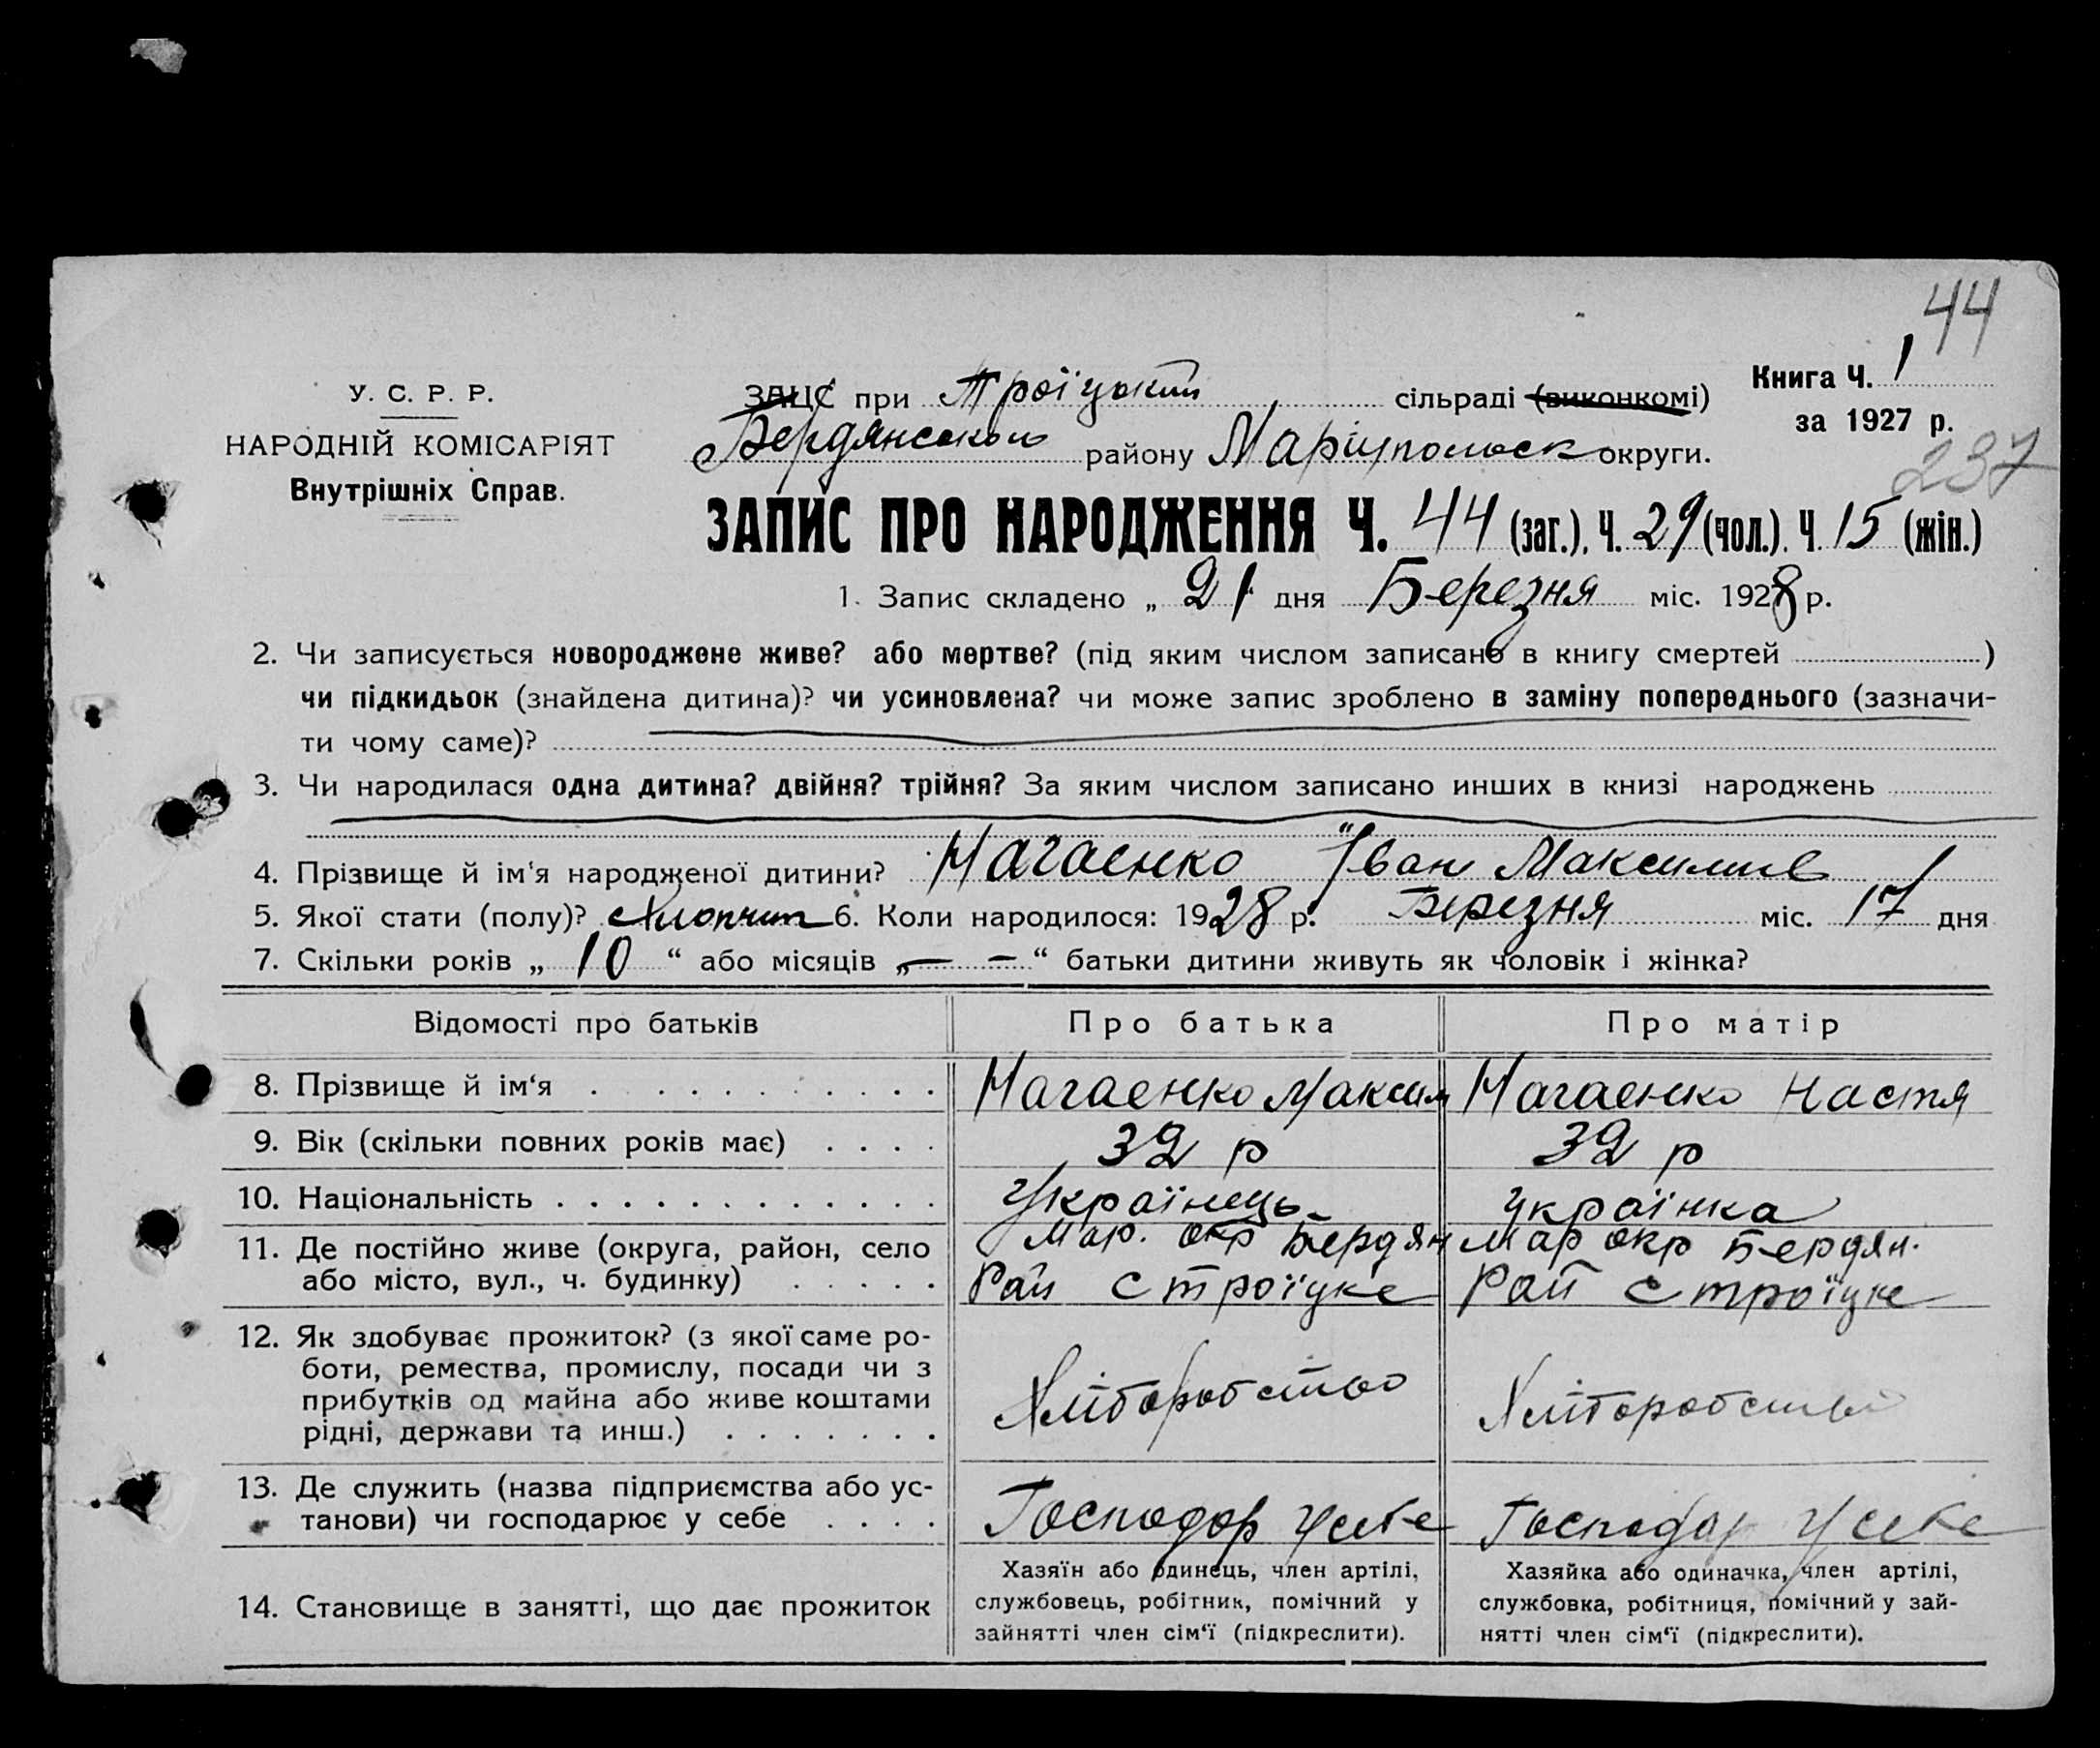 44
У. С. Р. Р.
НАРОДНІЙ КОМІСАРІЯТ
Внутрішніх Справ.
ЗАЦС при Троїцькій сільраді (виконкомі)
Книга Ч. 1
за 1927 р.
Бердянського району Маріупольськ округи.
237
ЗАПИС ПРО НАРОДЖЕННЯ Ч. 44 (заг.). Ч. 29 (чол.). Ч. 15 (жін.)
1. Запис складено „ 21 дня Березня міс. 1928 р.
2. Чи записується новороджене живе? або мертве? (під яким числом записано в книгу смертей )
чи підкидьок (знайдена дитина)? чи усиновлена? чи може запис зроблено в заміну попереднього (зазначи-
ти чому саме)?
3. Чи народилася одна дитина? двійня? трійня? За яким числом записано инших в книзі народжень
4. Прізвище й ім‘я народженої дитини? Нагаєнко Іван Максимів
5. Якої стати (полу)? Хлопчик 6. Коли народилося: 1928 р. Березня міс. 17 дня
7. Скільки років „ 10 “ або місяців „ — — “ батьки дитини живуть як чоловік і жінка?
Відомості про батьків Про батька Про матір
8. Прізвище й ім‘я Нагаєнко Максим Нагаєнко Настя
9. Вік (скільки повних років має) 32 р 32 р
10. Національність Українець українка
11. Де постійно живе (округа, район, село Мар. окр Бердян Мар окр Бердян.
або місто, вул., ч. будинку) Рай с троїцке Рай с троїцке
12. Як здобуває прожиток? (з якої саме ро-
боти, ремества, промислу, посади чи з
прибутків од майна або живе коштами
рідні, держави та инш.)
Хліборобство Хліборобство
13. Де служить (назва підприємства або ус-
танови) чи господарює у себе Господар у себе Господар у себе
14. Становище в занятті, що дає прожиток
Хазяїн або одинець, член артілі,
службовець, робітник, помічний у
зайнятті член сім‘ї (підкреслити).
Хазяйка або одиначка, член артілі,
службовка, робітниця, помічний у зай-
нятті член сім‘ї (підкреслити).